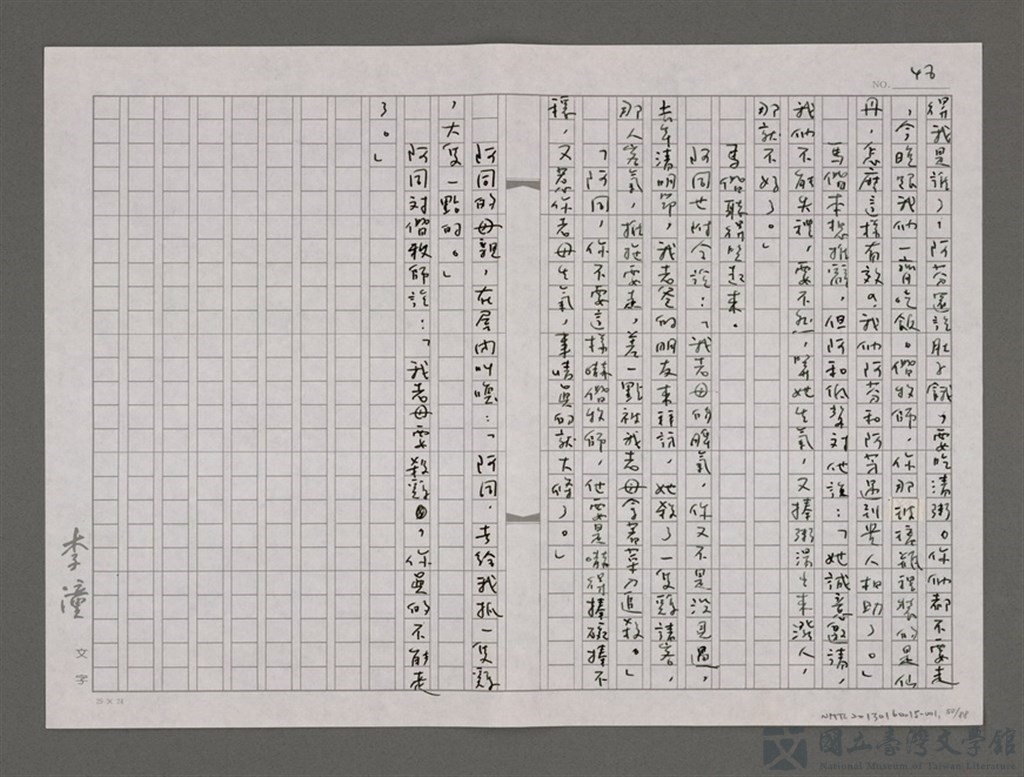 NO. 46
得我是誰了，阿芬還說肚子餓，要吃清粥。你們都不要走
，今晚跟我們一齊吃飯。偕牧師，你那玻璃瓶裡裝的是仙
丹，怎麼這樣有效？我們阿芬和阿芽遇到貴人相助了。」
馬偕本想推辭，但阿和低聲對他說：「她誠意邀請，
我們不能失禮，要不然，等她生氣，又捧粥湯出來潑人，
那就不好了。」
馬偕聽得笑起來。
阿同也附合說：「我老母的脾氣，你又不是沒見過，
去年清明節，我老爸的朋友來拜訪，她殺了一隻雞請客，
那人客氣，推拖要走，差一點被我老母拿著菜刀追殺。」
「阿同，你不要這樣嚇偕牧師，他要是嚇得捧碗捧不
穩，又惹你老母生氣，事情真的就大條了。」
阿同的母親，在屋內叫喚：「阿同，去給我抓一隻雞
，大隻一點的。」
阿同對偕牧師說：「我老母要殺雞，你真的不能走
了。」
李潼
文字
25×24
NMTL20130160015-001, 50/88
國立臺灣文學館
National Museum of Taiwan Literature